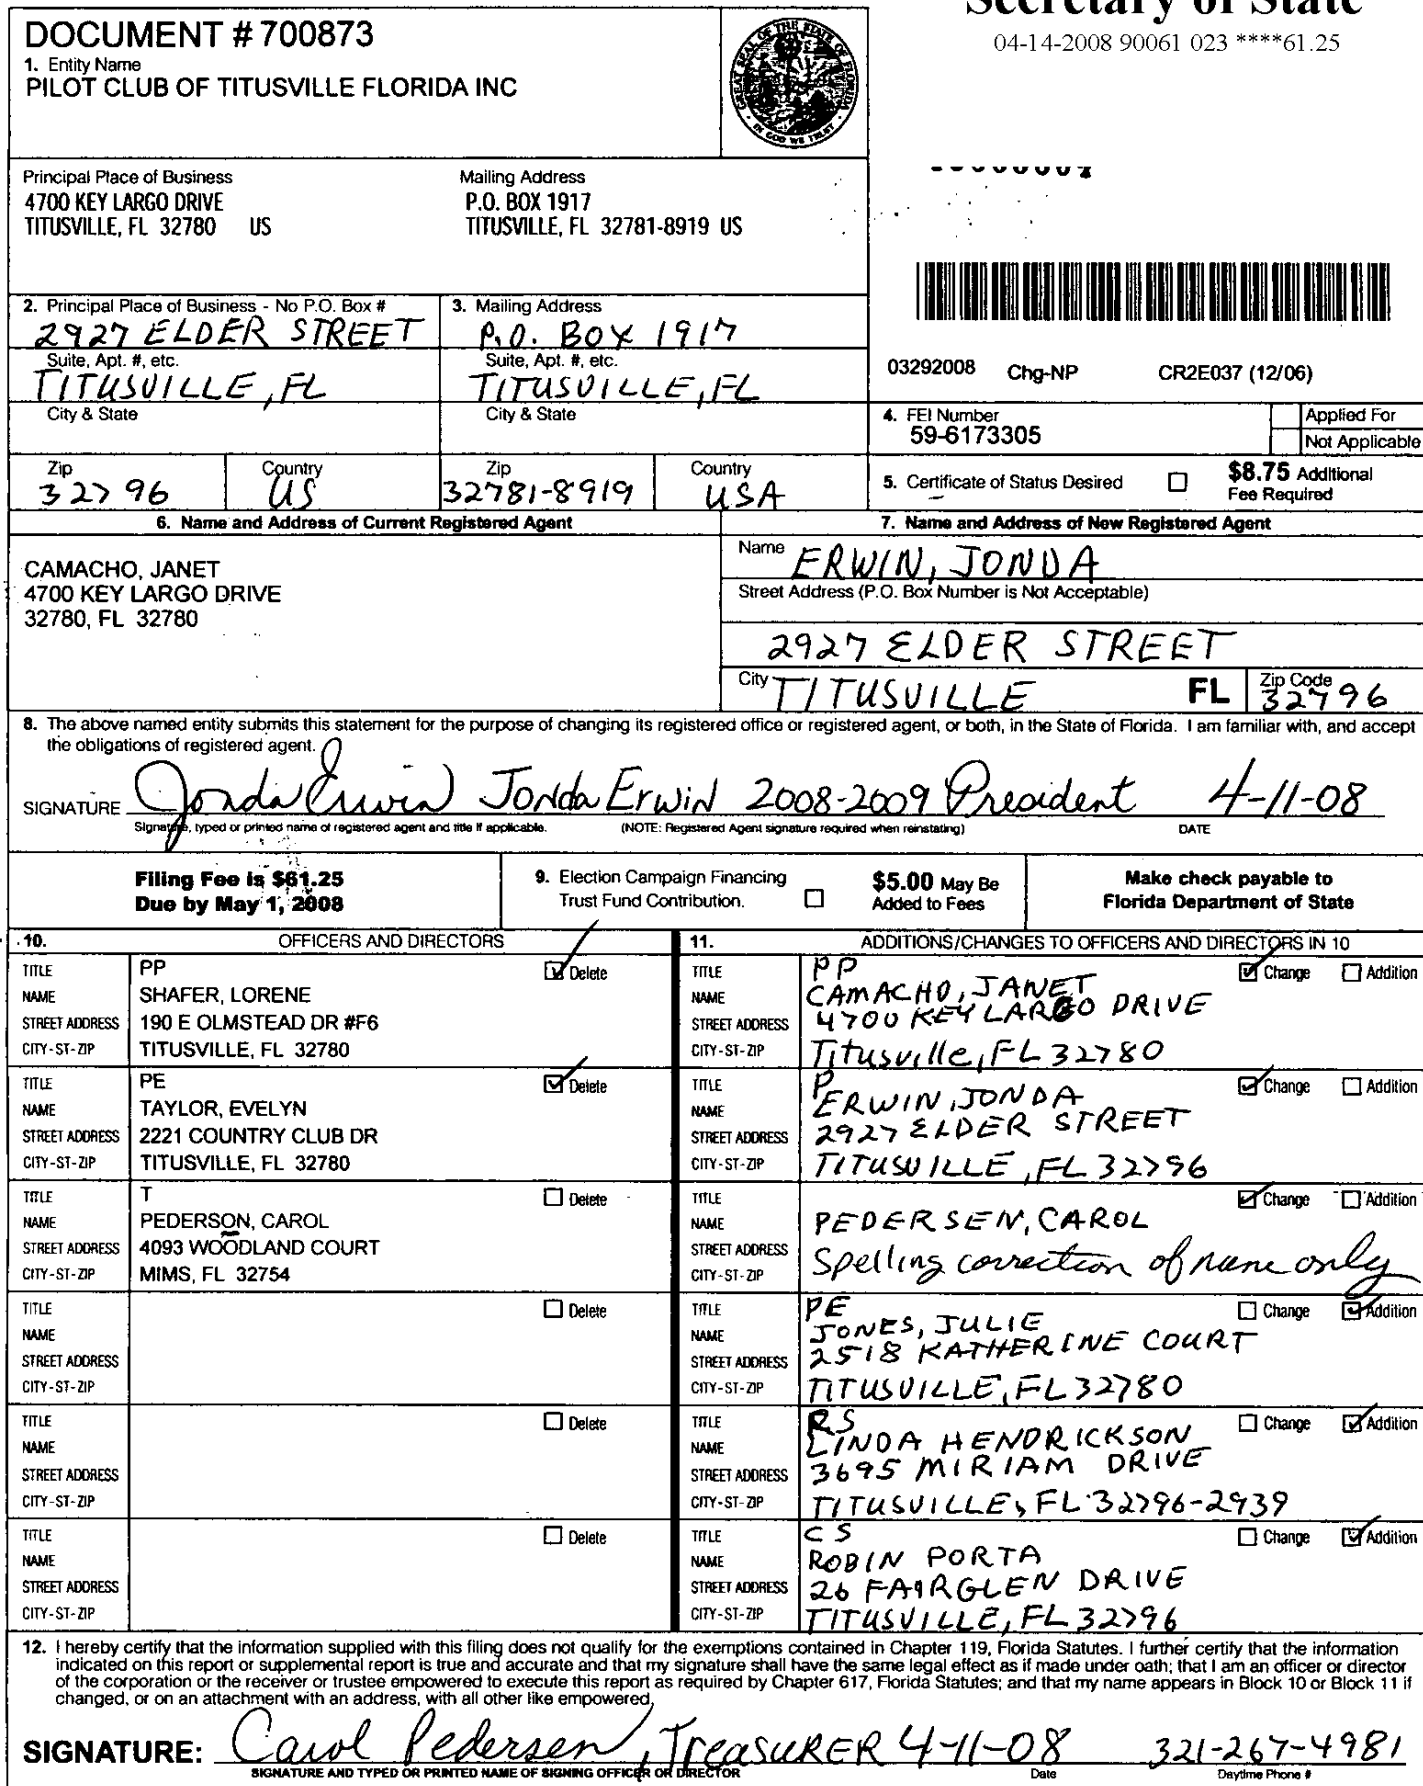 Secretary of State
04-14-2008 90061 023 ****61.25
DOCUMENT # 700873
1. Entity Name
PILOT CLUB OF TITUSVILLE FLORIDA INC
GREAT SEAL OF THE STATE OF FLORIDA
IN GOD WE TRUST
Principal Place of Business
4700 KEY LARGO DRIVE
TITUSVILLE, FL 32780 US
Mailing Address
P.O. BOX 1917
TITUSVILLE, FL 32781-8919 US
2. Principal Place of Business - No P.O. Box #
2927 ELDER STREET
Suite, Apt. #, etc.
TITUSVILLE, FL
City & State
Zip
32796
Country
US
3. Mailing Address
P.O. BOX 1917
Suite, Apt. #, etc.
TITUSVILLE, FL
City & State
Zip
32781-8919
Country
USA
03292008 Chg-NP CR2E037 (12/06)
4. FEI Number
59-6173305
Applied For
Not Applicable
5. Certificate of Status Desired
$8.75 Additional
Fee Required
6. Name and Address of Current Registered Agent
CAMACHO, JANET
4700 KEY LARGO DRIVE
32780, FL 32780
7. Name and Address of New Registered Agent
Name ERWIN, JONDA
Street Address (P.O. Box Number is Not Acceptable)
2927 ELDER STREET
City TITUSVILLE FL Zip Code 32796
8. The above named entity submits this statement for the purpose of changing its registered office or registered agent, or both, in the State of Florida. I am familiar with, and accept
the obligations of registered agent.
SIGNATURE Jonda Erwin Jonda Erwin 2008-2009 President 4-11-08
Signature, typed or printed name of registered agent and title if applicable. (NOTE: Registered Agent signature required when reinstating) DATE
Filing Fee is $61.25
Due by May 1, 2008
9. Election Campaign Financing
Trust Fund Contribution.
$5.00 May Be
Added to Fees
Make check payable to
Florida Department of State
10. OFFICERS AND DIRECTORS
TITLE PP Delete
NAME SHAFER, LORENE
STREET ADDRESS 190 E OLMSTEAD DR #F6
CITY-ST-ZIP TITUSVILLE, FL 32780
TITLE PE Delete
NAME TAYLOR, EVELYN
STREET ADDRESS 2221 COUNTRY CLUB DR
CITY-ST-ZIP TITUSVILLE, FL 32780
TITLE T Delete
NAME PEDERSON, CAROL
STREET ADDRESS 4093 WOODLAND COURT
CITY-ST-ZIP MIMS, FL 32754
TITLE Delete
NAME
STREET ADDRESS
CITY-ST-ZIP
TITLE Delete
NAME
STREET ADDRESS
CITY-ST-ZIP
TITLE Delete
NAME
STREET ADDRESS
CITY-ST-ZIP
11. ADDITIONS/CHANGES TO OFFICERS AND DIRECTORS IN 10
TITLE PP Change Addition
NAME CAMACHO, JANET
STREET ADDRESS 4700 KEY LARGO DRIVE
CITY-ST-ZIP Titusville, FL 32780
TITLE P Change Addition
NAME ERWIN, JONDA
STREET ADDRESS 2927 ELDER STREET
CITY-ST-ZIP TITUSVILLE, FL 32796
TITLE Change Addition
NAME PEDERSEN, CAROL
STREET ADDRESS Spelling correction of name only
CITY-ST-ZIP
TITLE PE Change Addition
NAME JONES, JULIE
STREET ADDRESS 2518 KATHERINE COURT
CITY-ST-ZIP TITUSVILLE, FL 32780
TITLE RS Change Addition
NAME LINDA HENDRICKSON
STREET ADDRESS 3695 MIRIAM DRIVE
CITY-ST-ZIP TITUSVILLE, FL 32796-2939
TITLE CS Change Addition
NAME ROBIN PORTA
STREET ADDRESS 26 FAIRGLEN DRIVE
CITY-ST-ZIP TITUSVILLE, FL 32796
12. I hereby certify that the information supplied with this filing does not qualify for the exemptions contained in Chapter 119, Florida Statutes. I further certify that the information
indicated on this report or supplemental report is true and accurate and that my signature shall have the same legal effect as if made under oath; that I am an officer or director
of the corporation or the receiver or trustee empowered to execute this report as required by Chapter 617, Florida Statutes; and that my name appears in Block 10 or Block 11 if
changed, or on an attachment with an address, with all other like empowered.
SIGNATURE: Carol Pedersen, Treasurer 4-11-08 321-267-4981
SIGNATURE AND TYPED OR PRINTED NAME OF SIGNING OFFICER OR DIRECTOR Date Daytime Phone #